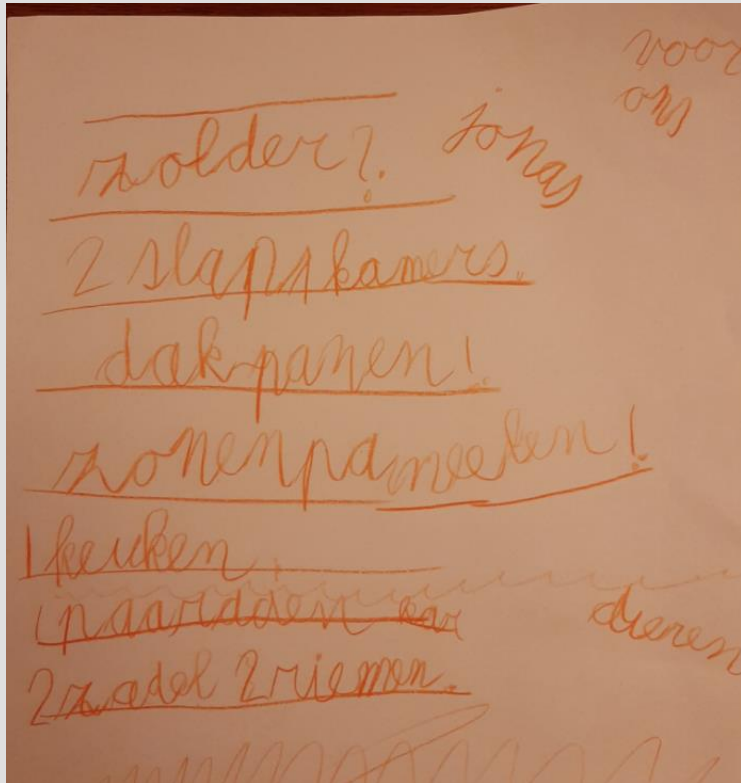 voor
ons
jonas
zolder?
2 slapskamers.
dakpanen!
zonenpaneelen!
1 keuken.
1 paardden kar
dieren
2 zadel 2 riemen.